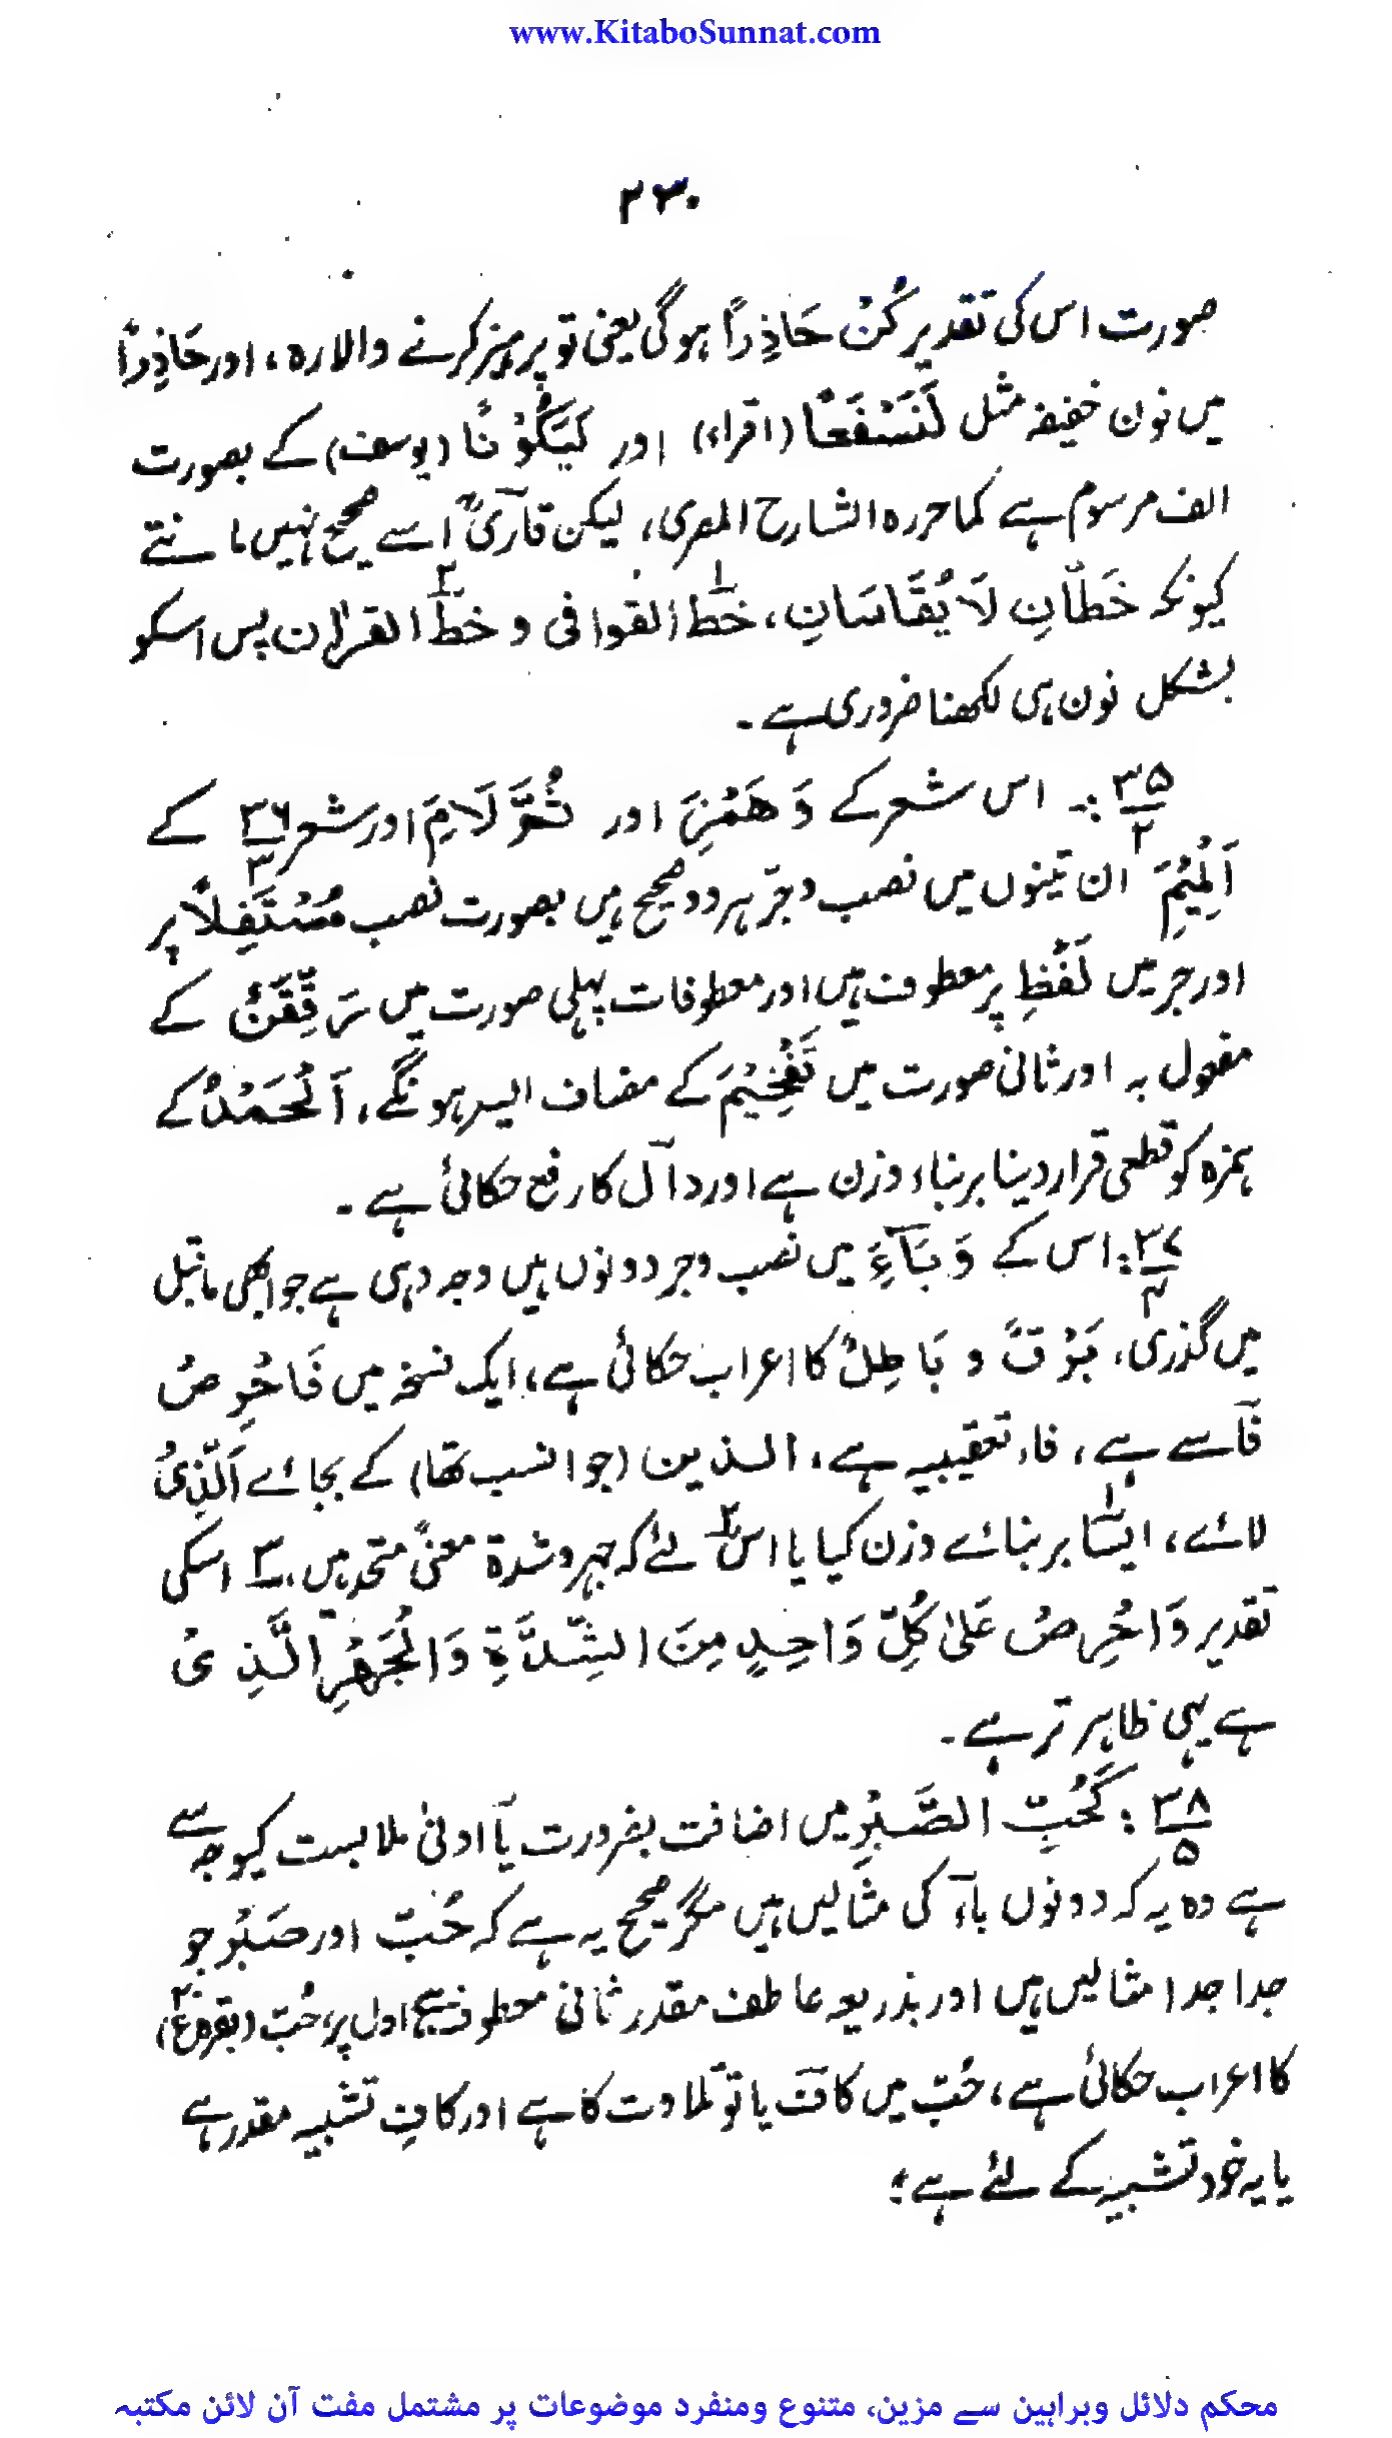 www.KitaboSunnat.com
۲۳۰
صورت اس کی تقدیر کُنْ حَاذِراً ہوگی یعنی تو پرہیز کرنے والا رہ، اور حَاذِراً
میں نون خفیفہ مثل لَنَسْفَعًا (اقراء) اور لَیَکُوْنًا (یوسف) کے بصورت
الف مرسوم ہے کما حررہ الشارح المصری، لیکن قاریؒ اسے صحیح نہیں مانتے
کیونکہ خَطَّانِ لَا یُقَاسَانِ، خط۱ القوافی و خط۲ القرآن پس اسکو
بشکل نون ہی لکھنا ضروری ہے۔
۳۵/۲ :۔ اس شعر کے وَهَمْزَِ اور ثُمَّ لَامَِ اور شعر ۳۶/۳ کے
اَلْمِیْمَِ ان تینوں میں نصب و جرّ ہر دو صحیح ہیں بصورت نصب مُسْتَفِلاً پر
اور جر میں لَفْظِ پر معطوف ہیں اور معطوفات پہلی صورت میں رَقِّقَنْ کے
مفعول بہ اور ثانی صورت میں تَفْخِیْمَ کے مضاف الیہ ہونگے، اَلْحَمْدُ کے
ہمزہ کو قطعی قرار دینا بربناء وزن ہے اور دآل کا رفع حکائی ہے۔
۳۷/۴ : اس کے وَ بَآءَِ میں نصب و جر دونوں ہیں وجہ وہی ہے جو ابھی ماقبل
میں گذری، بَرْقٌ و بَاطِلٌ کا اعراب حکائی ہے، ایک نسخہ میں فَاحْرِصْ
فآ سے ہے، فاء تعقیبیہ ہے، الذین (جو انسب تھا) کے بجائے اَلَّذِیْ
لائے، ایسا۱ بربنائے وزن کیا یا اس۲ لئے کہ جہر و شدۃ معنیً متحد ہیں، ۳ اسکی
تقدیر وَاحْرِصْ عَلیٰ کُلِّ وَاحِدٍ مِنَ الشِّدَّةِ وَالْجَهْرِ الَّذِیْ
ہے یہی ظاہر تر ہے۔
۳۸/۵ : کَحُبِّ الصَّبْرِ میں اضافت بضرورت یا ادنیٰ ملابست کیوجہ سے
ہے وہ یہ کہ دونوں باء کی مثالیں ہیں مگر صحیح یہ ہے کہ حُبّ اور صَبْر جو
جدا جدا مثالیں ہیں اور بذریعہ عاطف مقدر ثانی معطوف ہے اول پر، حُبّ (بقرہ ع۲۰)
کا اعراب حکائی ہے، حُبّ میں کاف یا تو تلاوت کا ہے اور کافِ تشبیہ مقدر ہے
یا یہ خود تشبیہ کے لئے ہے؛
محکم دلائل وبراہین سے مزین، متنوع ومنفرد موضوعات پر مشتمل مفت آن لائن مکتبہ